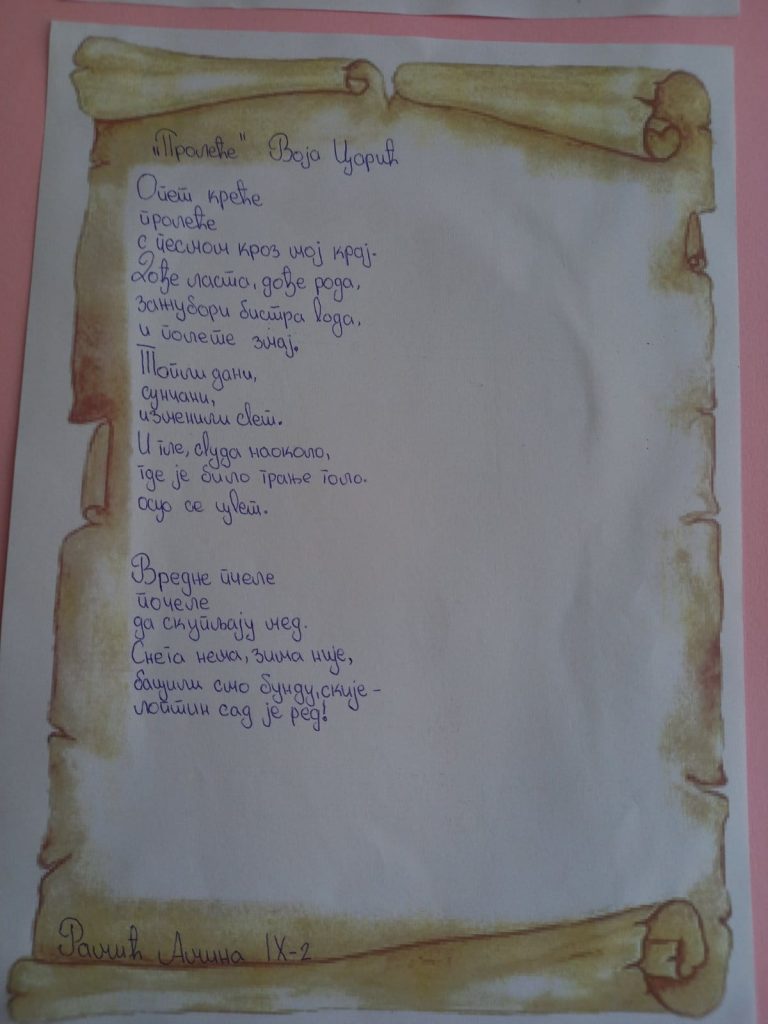 „Пролеће“ Воја Царић
Опет креће
пролеће
с песмом кроз мој крај.
Дође ласта, дође рода,
зажубори бистра вода,
и полете змај.
Топли дани,
сунчани,
изменили свет.
И гле, свуда наоколо,
где је било грање голо.
осуо се цвет.
Вредне пчеле
почеле
да скупљају мед.
Снега нема, зима није,
бацили смо бунду, скије –
лоптин сад је ред!
Рамић Амина IX-2